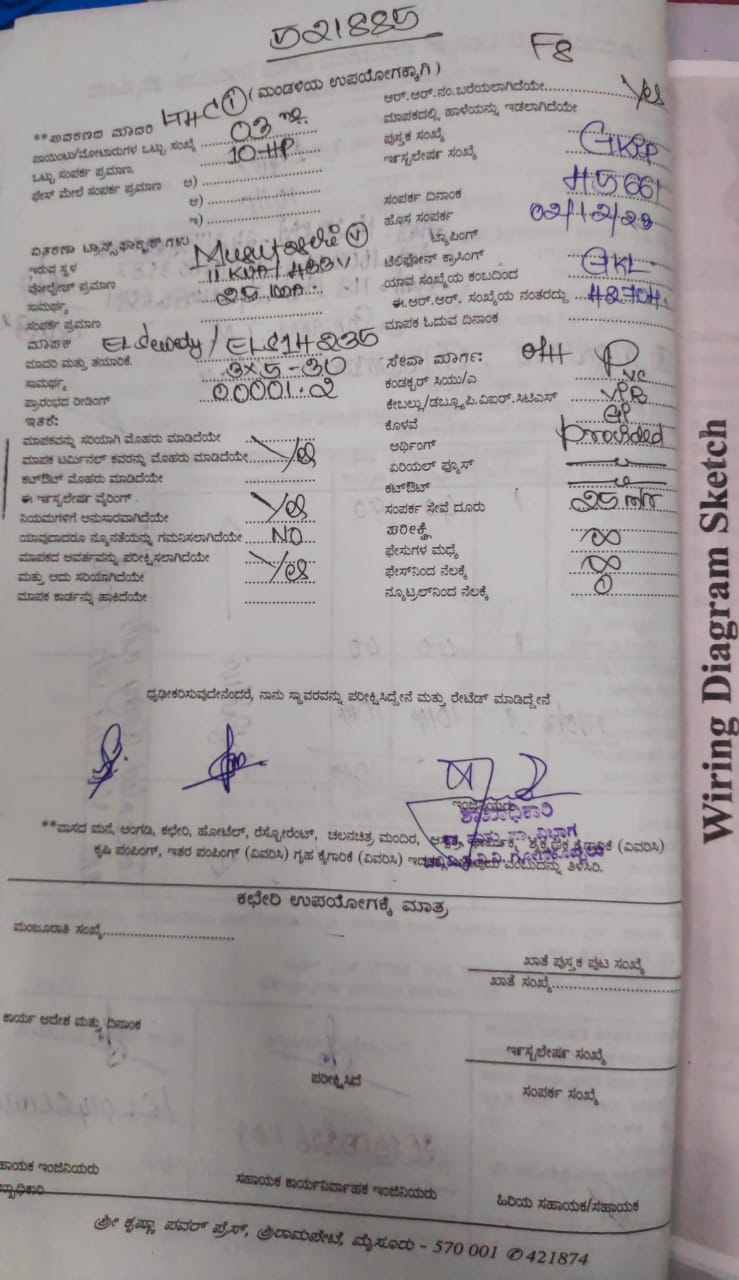 521885
F8
(ಮಂಡಳಿಯ ಉಪಯೋಗಕ್ಕಾಗಿ)
**ಆವರಣದ ಮಾದರಿ
ಪಾಯಿಂಟು/ಮೋಟಾರುಗಳ ಒಟ್ಟು ಸಂಖ್ಯೆ 03
ಒಟ್ಟು ಸಂಪರ್ಕ ಪ್ರಮಾಣ. 10-HP
ಫೇಸ್ ಮೇಲೆ ಸಂಪರ್ಕ ಪ್ರಮಾಣ ಅ)
ಆ)
ಇ)
ವಿತರಣಾ ಟ್ರಾನ್ಸ್‌ಫಾರ್ಮರ್ ಗಳು
ಇರುವ ಸ್ಥಳ
ವೋಲ್ಟೇಜ್ ಪ್ರಮಾಣ 11 KVA / 433 V
ಸಾಮರ್ಥ್ಯ 25 KVA.
ಸಂಪರ್ಕ ಪ್ರಮಾಣ
ಮಾಪಕ
ಮಾದರಿ ಮತ್ತು ತಯಾರಿಕೆ.
ಸಾಮರ್ಥ್ಯ 3x5-30
ಪ್ರಾರಂಭದ ರೀಡಿಂಗ್ 00001.2
ಇತರೆ:
ಮಾಪಕವನ್ನು ಸರಿಯಾಗಿ ಮೊಹರು ಮಾಡಿದೆಯೇ
ಮಾಪಕ ಟರ್ಮಿನಲ್ ಕವರನ್ನು ಮೊಹರು ಮಾಡಿದೆಯೇ Yes
ಕಟ್‌ಔಟ್ ಮೊಹರು ಮಾಡಿದೆಯೇ
ಈ ಇನ್ಸ್‌ಟಲೇಷನ್ ವೈರಿಂಗ್
ನಿಯಮಗಳಿಗೆ ಅನುಸಾರವಾಗಿದೆಯೇ Yes
ಯಾವುದಾದರೂ ನ್ಯೂನತೆಯನ್ನು ಗಮನಿಸಲಾಗಿದೆಯೇ NO
ಮಾಪಕದ ಆವರ್ತವನ್ನು ಪರೀಕ್ಷಿಸಲಾಗಿದೆಯೇ
ಮತ್ತು ಅದು ಸರಿಯಾಗಿದೆಯೇ Yes
ಮಾಪಕ ಕಾರ್ಡನ್ನು ಹಾಕಿದೆಯೇ
ಆರ್.ಆರ್.ನಂ.ಬರೆಯಲಾಗಿದೆಯೇ Yes
ಮಾಪಕದಲ್ಲಿ ಹಾಳೆಯನ್ನು ಇಡಲಾಗಿದೆಯೇ
ಪುಸ್ತಕ ಸಂಖ್ಯೆ
ಇನ್ಸ್‌ಟಲೇಷನ್ ಸಂಖ್ಯೆ
ಸಂಪರ್ಕ ದಿನಾಂಕ
ಹೊಸ ಸಂಪರ್ಕ 02/12/23
ಟ್ಯಾಪಿಂಗ್
ಟೆಲಿಫೋನ್ ಕ್ರಾಸಿಂಗ್
ಯಾವ ಸಂಖ್ಯೆಯ ಕಂಬದಿಂದ GKL
ಈ.ಆರ್.ಆರ್. ಸಂಖ್ಯೆಯ ನಂತರದ್ದು
ಮಾಪಕ ಓದುವ ದಿನಾಂಕ
ಸೇವಾ ಮಾರ್ಗ: O/H
ಕಂಡಕ್ಟರ್ ಸಿಯು/ಎ PVC
ಕೇಬಲ್ಲು/ಡಬ್ಲ್ಯೂ.ಪಿ.ವಿಐಆರ್.ಸಿಟಿಎಸ್
ಕೊಳವೆ GP
ಅರ್ಥಿಂಗ್ Provided
ಏರಿಯಲ್ ಫ್ಯೂಸ್
ಕಟ್‌ಔಟ್
ಸಂಪರ್ಕ ಸೇವೆ ದೂರು
ಪರೀಕ್ಷೆ
ಫೇಸುಗಳ ಮಧ್ಯೆ ∞
ಫೇಸ್‌ನಿಂದ ನೆಲಕ್ಕೆ ∞
ನ್ಯೂಟ್ರಲ್‌ನಿಂದ ನೆಲಕ್ಕೆ
ಧೃಢೀಕರಿಸುವುದೇನೆಂದರೆ, ನಾನು ಸ್ಥಾವರವನ್ನು ಪರೀಕ್ಷಿಸಿದ್ದೇನೆ ಮತ್ತು ರೇಟೆಡ್ ಮಾಡಿದ್ದೇನೆ
ಇಂಜಿನಿಯರು
ಶಾಖಾಧಿಕಾರಿ
**ವಾಸದ ಮನೆ, ಅಂಗಡಿ, ಕಛೇರಿ, ಹೋಟೆಲ್, ರೆಸ್ಟೋರೆಂಟ್, ಚಲನಚಿತ್ರ ಮಂದಿರ, ಕೈಗಾರಿಕೆ (ವಿವರಿಸಿ)
ಕೃಷಿ ಪಂಪಿಂಗ್, ಇತರ ಪಂಪಿಂಗ್ (ವಿವರಿಸಿ) ಗೃಹ ಕೈಗಾರಿಕೆ (ವಿವರಿಸಿ) ಎಂಬುದನ್ನು ತಿಳಿಸಿರಿ.
ಕಛೇರಿ ಉಪಯೋಗಕ್ಕೆ ಮಾತ್ರ
ಮಂಜೂರಾತಿ ಸಂಖ್ಯೆ
ಖಾತೆ ಪುಸ್ತಕ ಪುಟ ಸಂಖ್ಯೆ
ಖಾತೆ ಸಂಖ್ಯೆ
ಕಾರ್ಯ ಆದೇಶ ಮತ್ತು ದಿನಾಂಕ
ಇನ್ಸ್‌ಟಲೇಷನ್ ಸಂಖ್ಯೆ
ಪರೀಕ್ಷಿಸಿದೆ
ಸಂಪರ್ಕ ಸಂಖ್ಯೆ
ಹಾಯಕ ಇಂಜಿನಿಯರು
ಸಹಾಯಕ ಕಾರ್ಯನಿರ್ವಾಹಕ ಇಂಜಿನಿಯರು
ಹಿರಿಯ ಸಹಾಯಕ/ಸಹಾಯಕ
ಶ್ರೀ ಕೃಷ್ಣಾ ಪವರ್ ಪ್ರೆಸ್, ಶ್ರೀರಾಮಪೇಟೆ, ಮೈಸೂರು - 570 001 ✆ 421874
Wiring Diagram Sketch